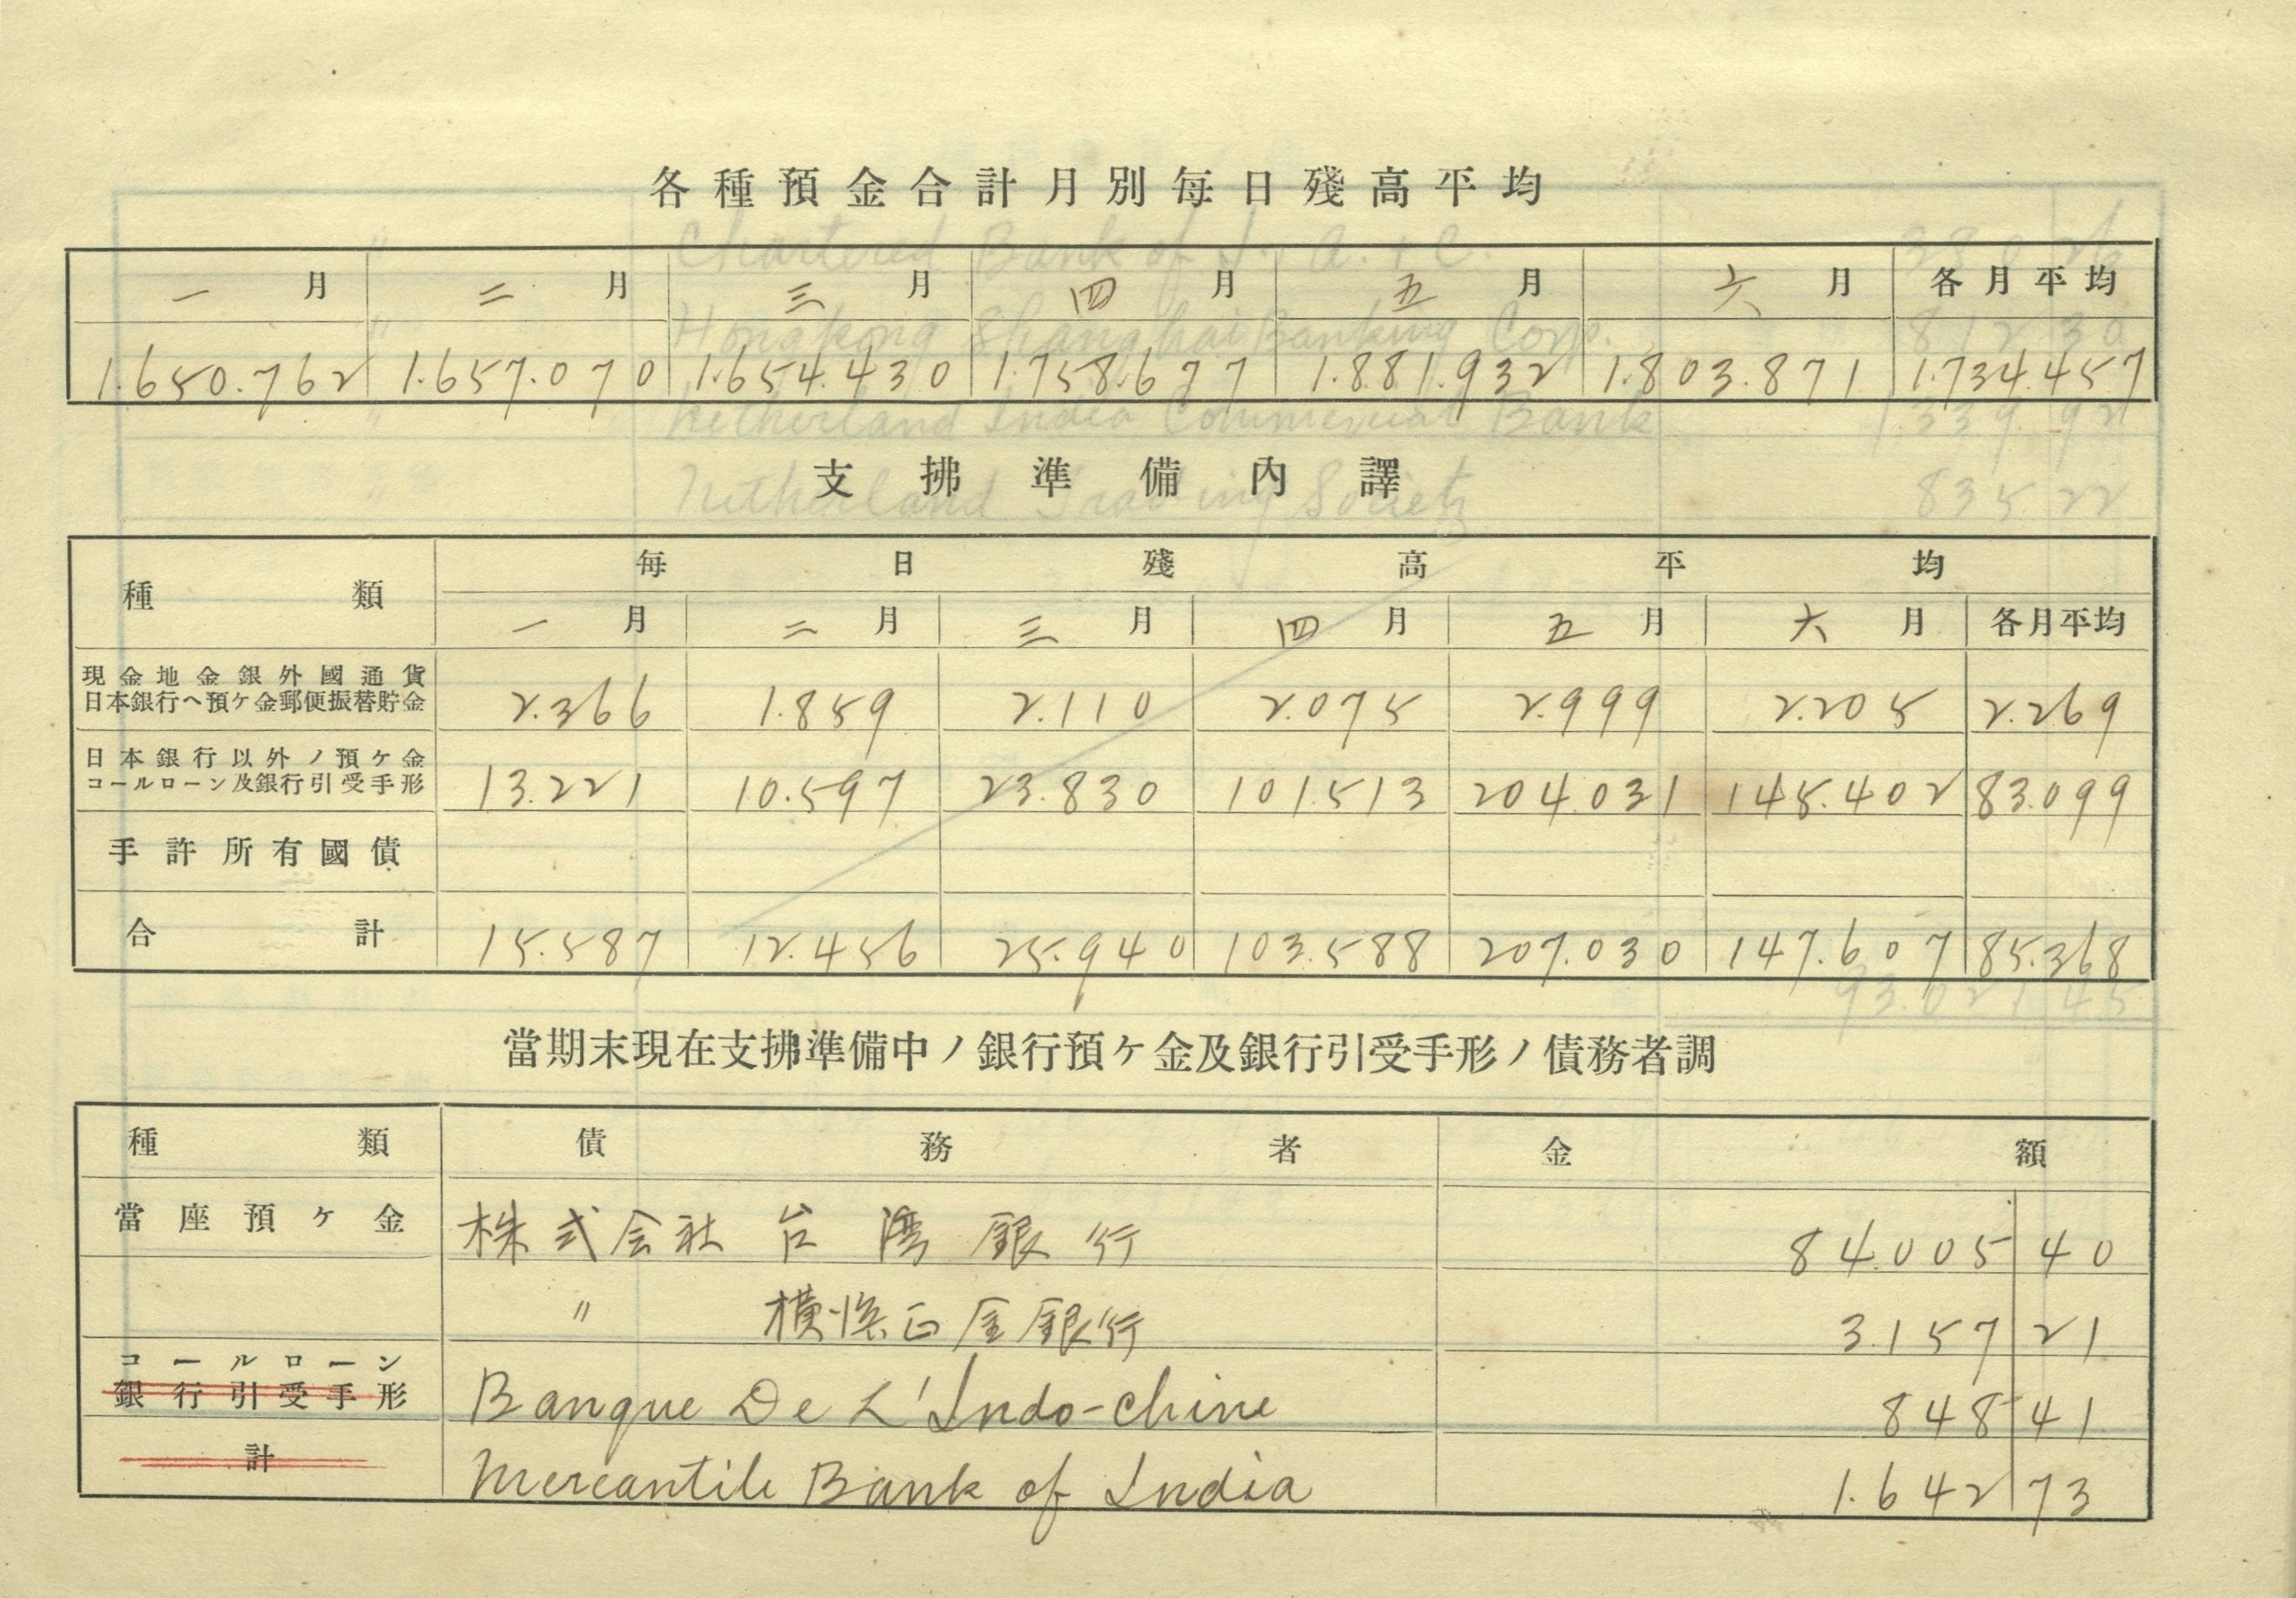 各種預金合計月別每日殘高平均
一月 二月 三月 四月 五月 六月 各月平均
1.650.762 1.657.070 1.654.430 1.758.677 1.881.932 1.803.871 1.734.457
支拂準備內譯
種類 每日殘高平均
一月 二月 三月 四月 五月 六月 各月平均
現金地金銀外國通貨
日本銀行ヘ預ケ金郵便振替貯金 2.366 1.859 2.110 2.075 2.999 2.205 2.269
日本銀行以外ノ預ケ金
コールローン及銀行引受手形 13.221 10.597 23.830 101.513 204.031 145.402 83.099
手許所有國債
合計 15.587 12.456 25.940 103.588 207.030 147.607 85.368
當期末現在支拂準備中ノ銀行預ケ金及銀行引受手形ノ債務者調
種類 債務者 金額
當座預ケ金 株式会社 台湾銀行 84.005 40
〃 横浜正金銀行 3.157 21
コールローン
銀行引受手形 Banque De L'Indo-Chine 848 41
計 Mercantile Bank of India 1.642 73
Chartered Bank of I. A. & C.
Hongkong Shanghai Banking Corp. 812 30
Netherland India Commercial Bank 1.339 92
Netherland Trading Society 835 22